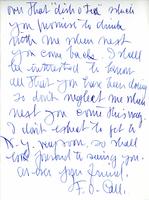 over that dish of tea which
you promise to drink
with me when next
you come back. I shall
be interested to know
all that you have been doing
so don't neglect me when
next you come this way.
I don't expect to get to
N.Y. very soon, so shall
look forward to seeing you.
as ever your friend,